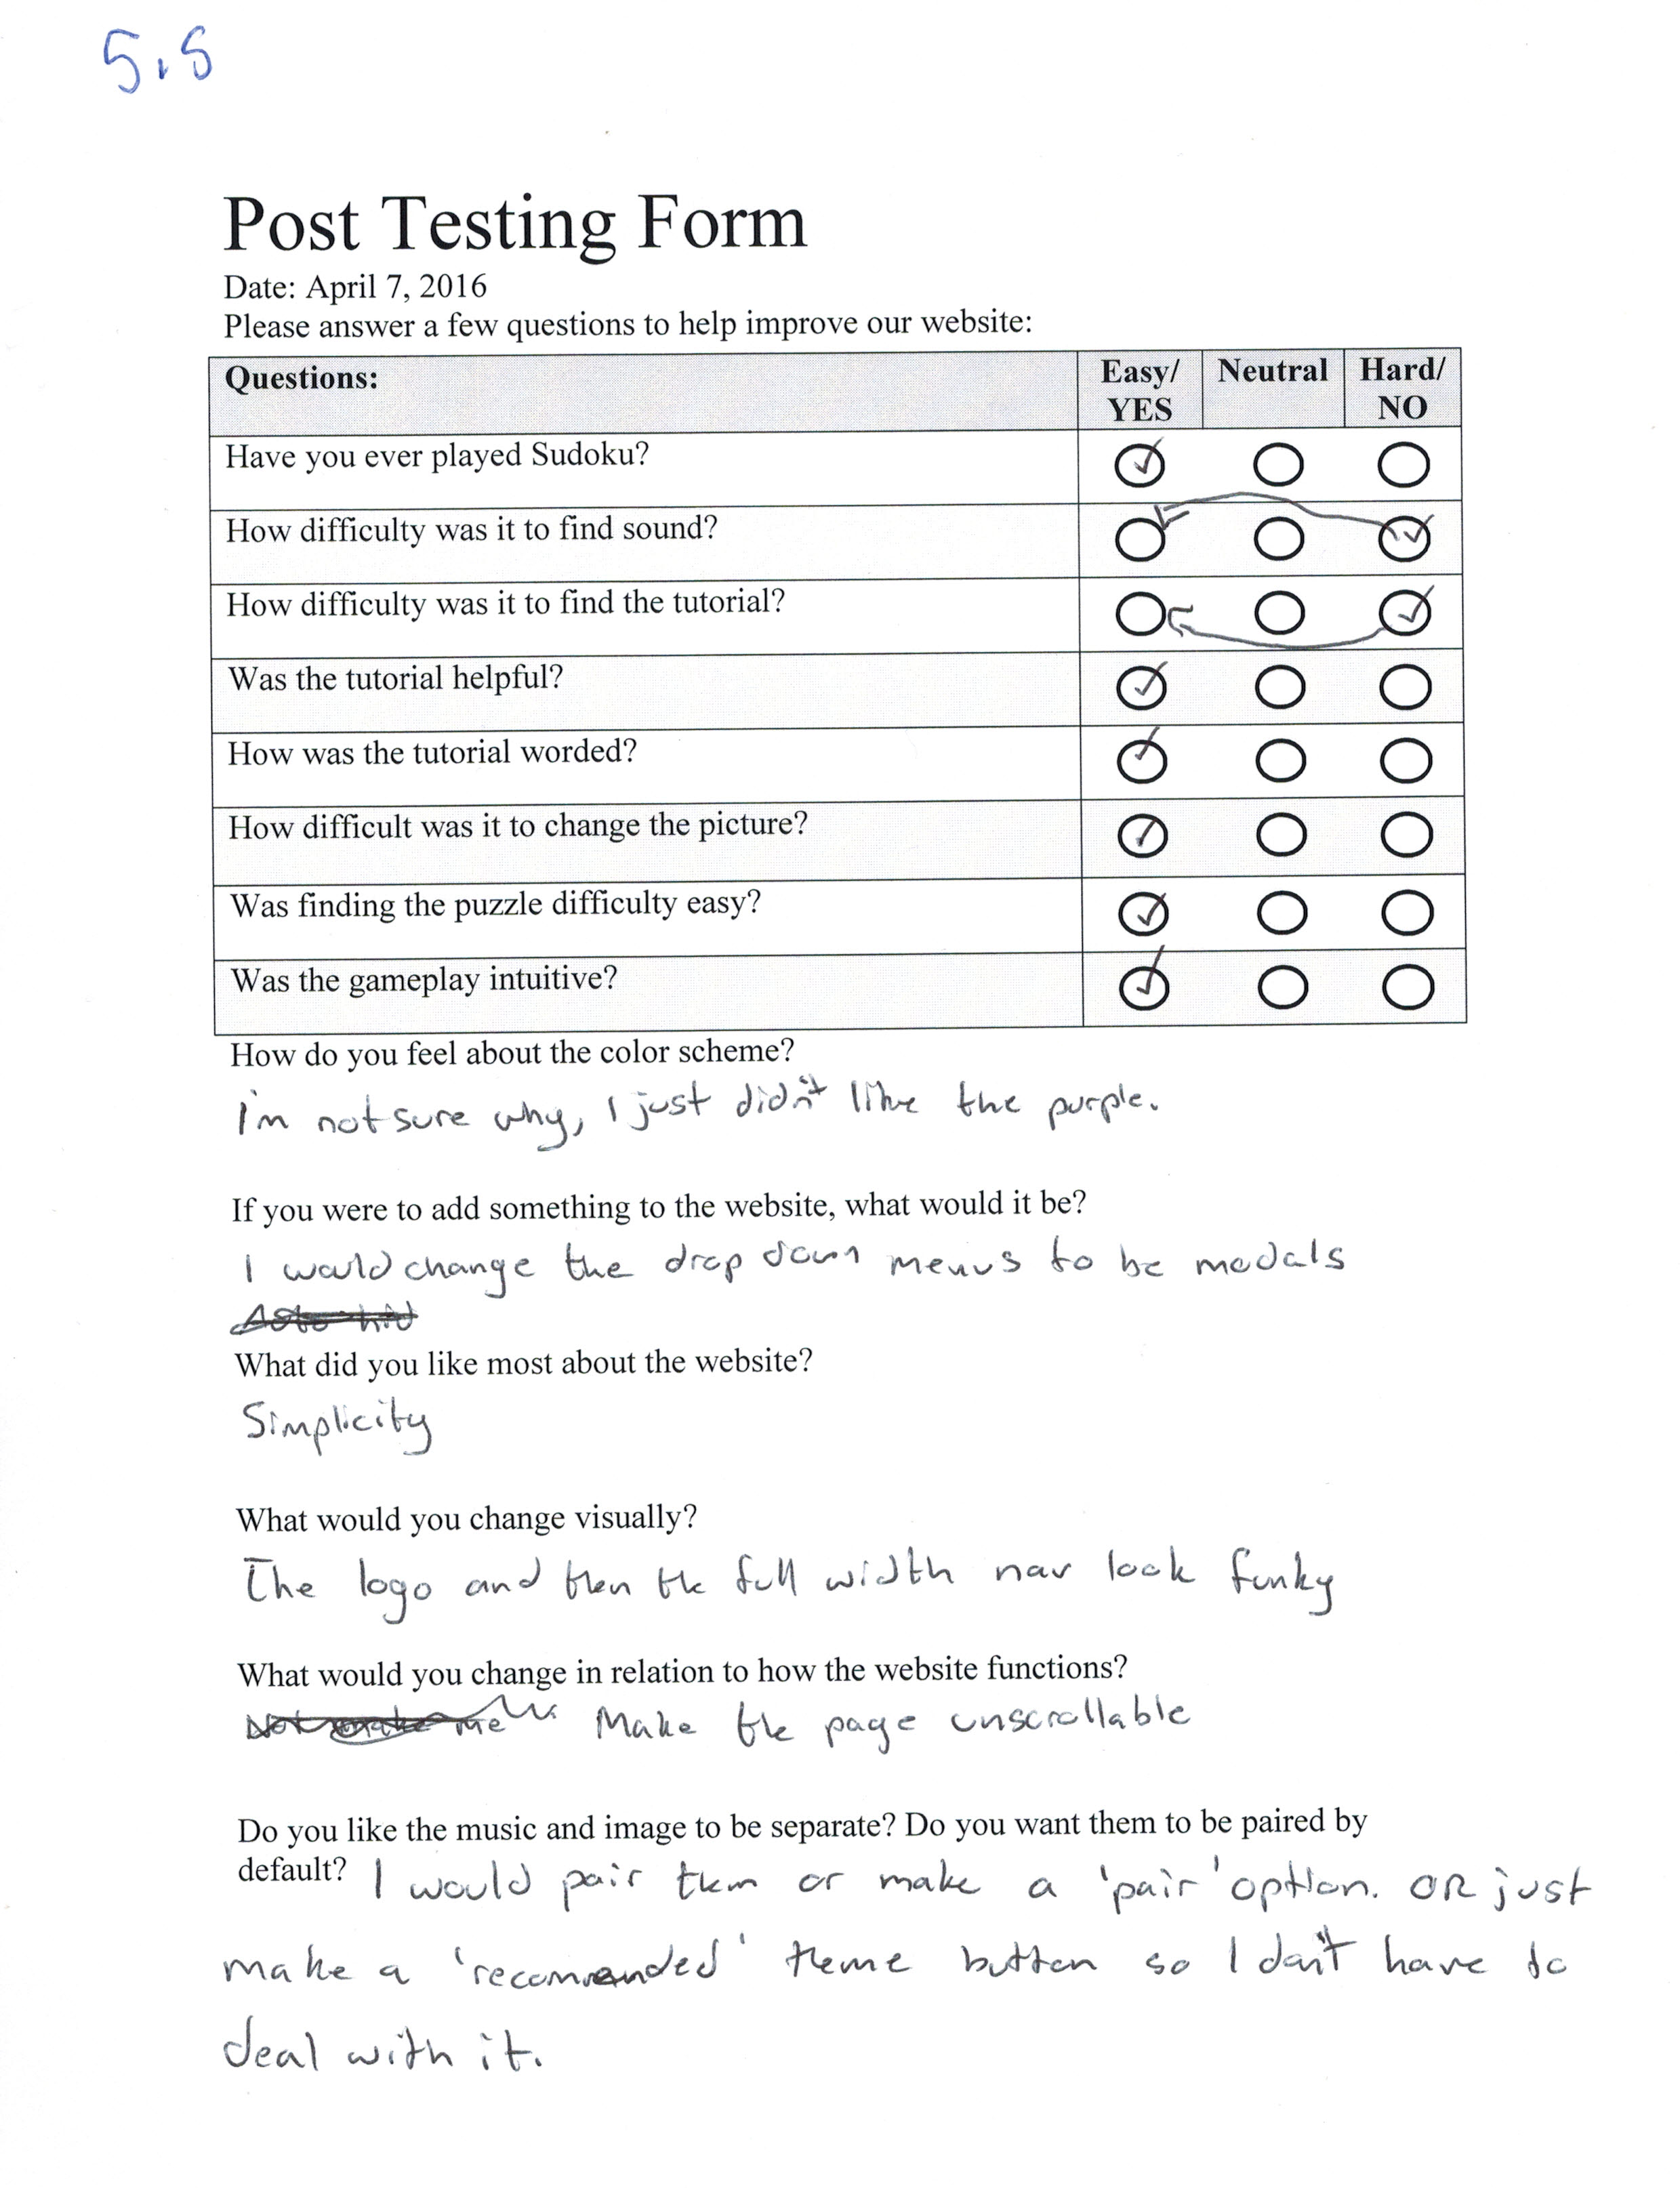 5.5
Post Testing Form
Date: April 7, 2016
Please answer a few questions to help improve our website:
Questions: Easy/ YES Neutral Hard/ NO
Have you ever played Sudoku?
How difficulty was it to find sound?
How difficulty was it to find the tutorial?
Was the tutorial helpful?
How was the tutorial worded?
How difficult was it to change the picture?
Was finding the puzzle difficulty easy?
Was the gameplay intuitive?
How do you feel about the color scheme?
I'm not sure why, I just didn't like the purple.
If you were to add something to the website, what would it be?
I would change the drop down menus to be modals
What did you like most about the website?
Simplicity
What would you change visually?
The logo and then the full width nav look funky
What would you change in relation to how the website functions?
Make the page unscrollable
Do you like the music and image to be separate? Do you want them to be paired by
default? I would pair them or make a 'pair' option. OR just
make a 'recommended' theme button so I don't have to
deal with it.